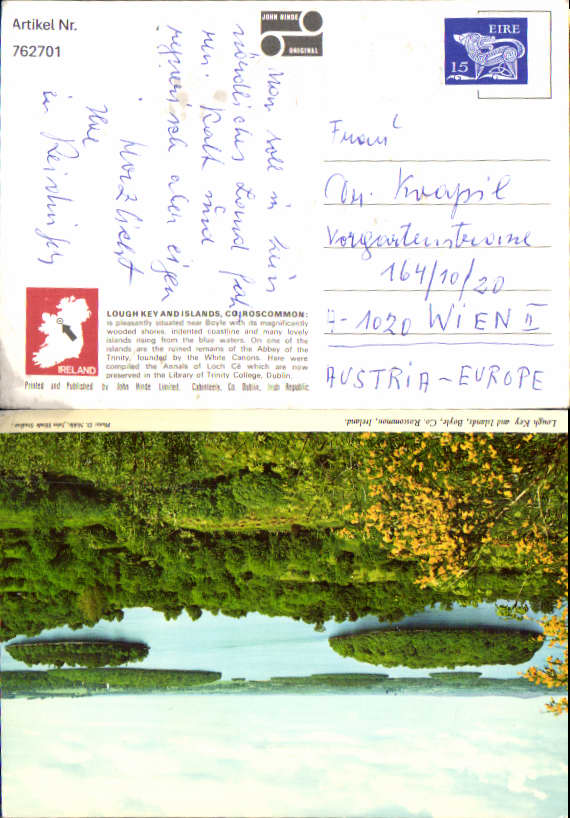 Artikel Nr.
762701
JOHN HINDE
ORIGINAL
EIRE
15
Man soll in kein
nördliches Land fah
ren. Kalt und
regnerisch aber eigen
Herzlichst
Ihre
Frau
Kvapil
Vorgartenstrasse
164/10/20
A-1020 WIEN II
AUSTRiA-EUROPE
IRELAND
LOUGH KEY AND ISLANDS, CO. ROSCOMMON:
is pleasantly situated near Boyle with its magnificently
wooded shores, indented coastline and many lovely
islands rising from the blue waters. On one of the
islands are the ruined remains of the Abbey of the
Trinity, founded by the White Canons. Here were
compiled the Annals of Loch Cé which are now
preserved in the Library of Trinity College, Dublin.
Printed and Published by John Hinde Limited, Cabinteely, Co. Dublin, Irish Republic
Lough Key and Islands, Boyle, Co. Roscommon, Ireland.